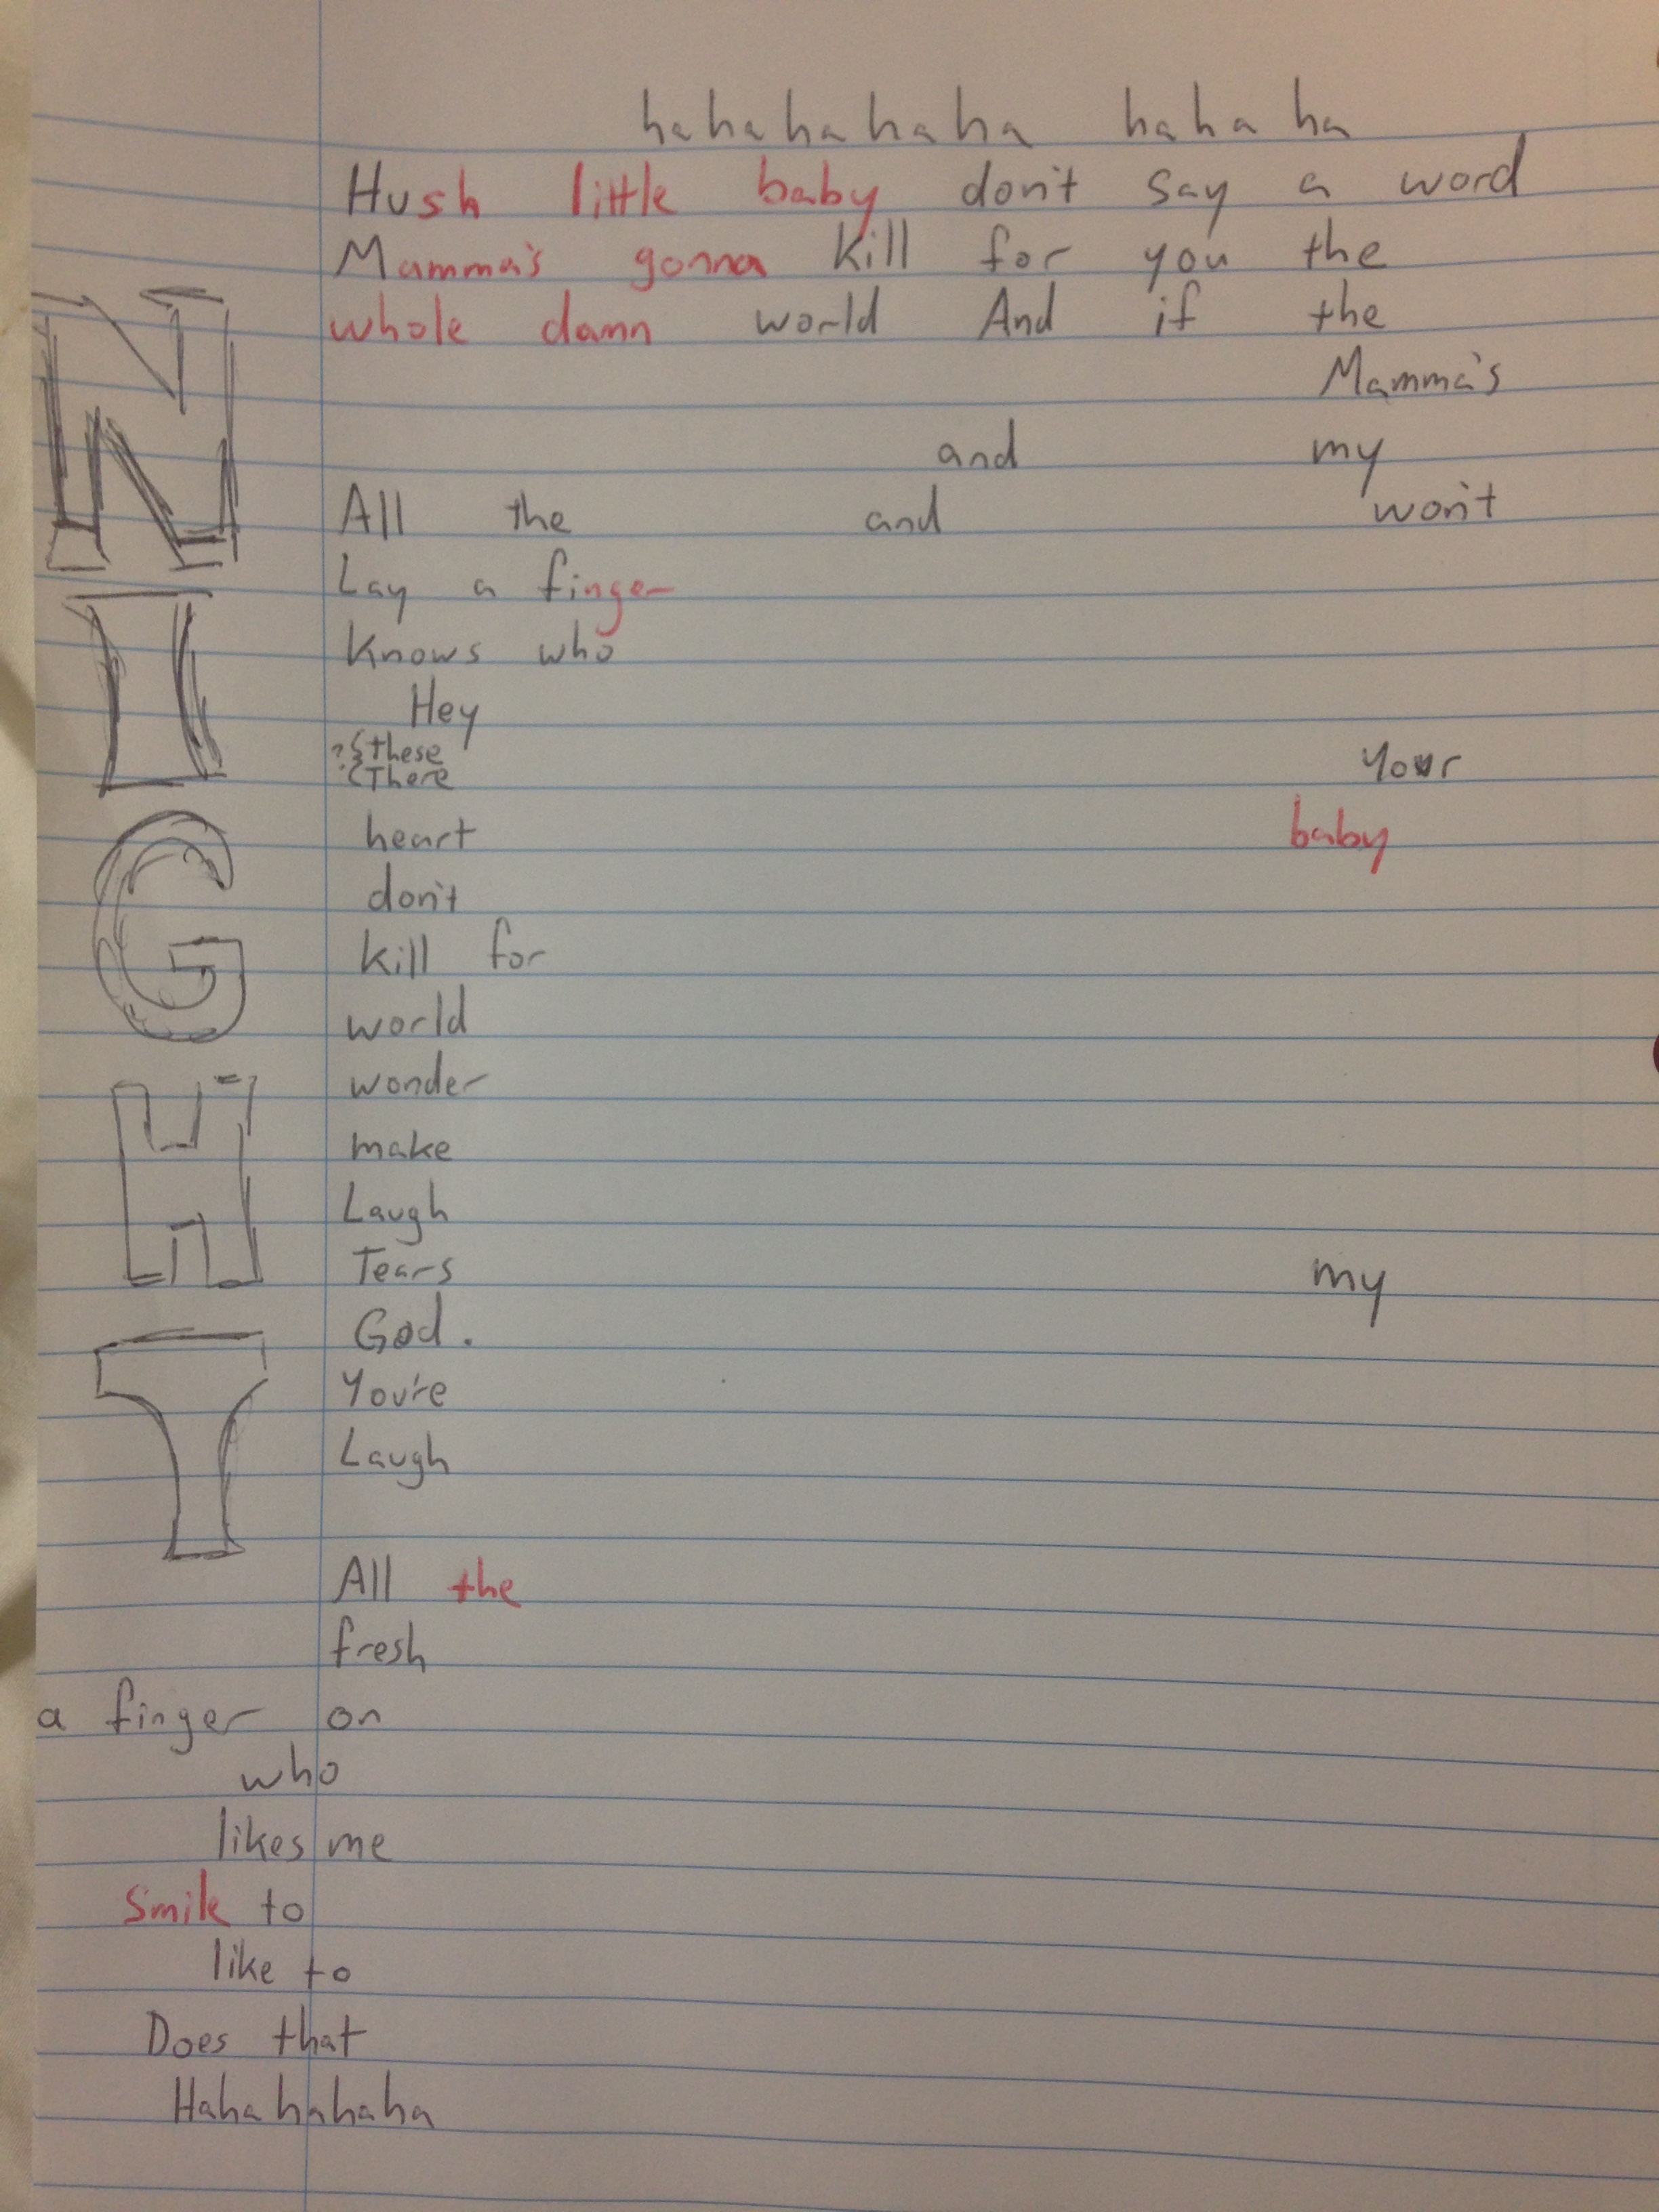 hahahahaha haha ha
Hush little baby don't say a word
Mamma's gonna kill for you the
whole damn world And if the
Mamma's
and my
All the and won't
Lay a finger
Knows who
Hey
?{these
{There Your
heart baby
don't
kill for
world
wonder
make
Laugh
Tears my
God.
You're
Laugh
All the
fresh
a finger on
who
likes me
Smile to
like to
Does that
Hahahahaha
NIGHT